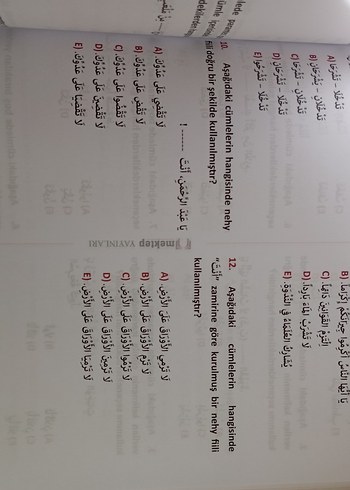 A) تَدْخُلَا – تَشْرَحَا
B) تَدْخُلَانِ – تَشْرَحَانِ
C) تَدْخُلَانِ – تَشْرَحَا
D) تَدْخُلَا – تَشْرَحَانِ
E) تَدْخُلَا – تَشْرَحُوا
10. Aşağıdaki cümlelerin hangisinde nehy
fiili doğru bir şekilde kullanılmıştır?
يَا عَبْدَ الرَّحْمٰنِ، أَنْتَ ------- !
A) لَا تَقْضِي عَلَى عَدُوِّكَ
B) لَا تَقْضِ عَلَى عَدُوِّكَ
C) لَا تَقْضُوا عَلَى عَدُوِّكَ
D) لَا تَقْضِينَ عَلَى عَدُوِّكَ
E) لَا تَقْضِيَا عَلَى عَدُوِّكَ
B) يَا أَيُّهَا النَّاسُ أَكْرِمُوا جِيرَانَكُمْ إِكْرَامًا.
C) اِلْتَزِمِ الْقَوَانِينَ دَائِمًا.
D) لَا تَشْرَبِ الْمَاءَ بَارِدًا.
E) يُشَارِكُ الْعُلَمَاءُ فِي النَّدْوَةِ.
12. Aşağıdaki cümlelerin hangisinde
“أَنْتَ” zamirine göre kurulmuş bir nehy fiili
kullanılmıştır?
A) لَا تَرْمِي الْأَوْرَاقَ عَلَى الْأَرْضِ.
B) لَا تَرْمِ الْأَوْرَاقَ عَلَى الْأَرْضِ.
C) لَا تَرْمُوا الْأَوْرَاقَ عَلَى الْأَرْضِ.
D) لَا تَرْمِينَ الْأَوْرَاقَ عَلَى الْأَرْضِ.
E) لَا تَرْمِيَا الْأَوْرَاقَ عَلَى الْأَرْضِ.
mektep YAYINLARI